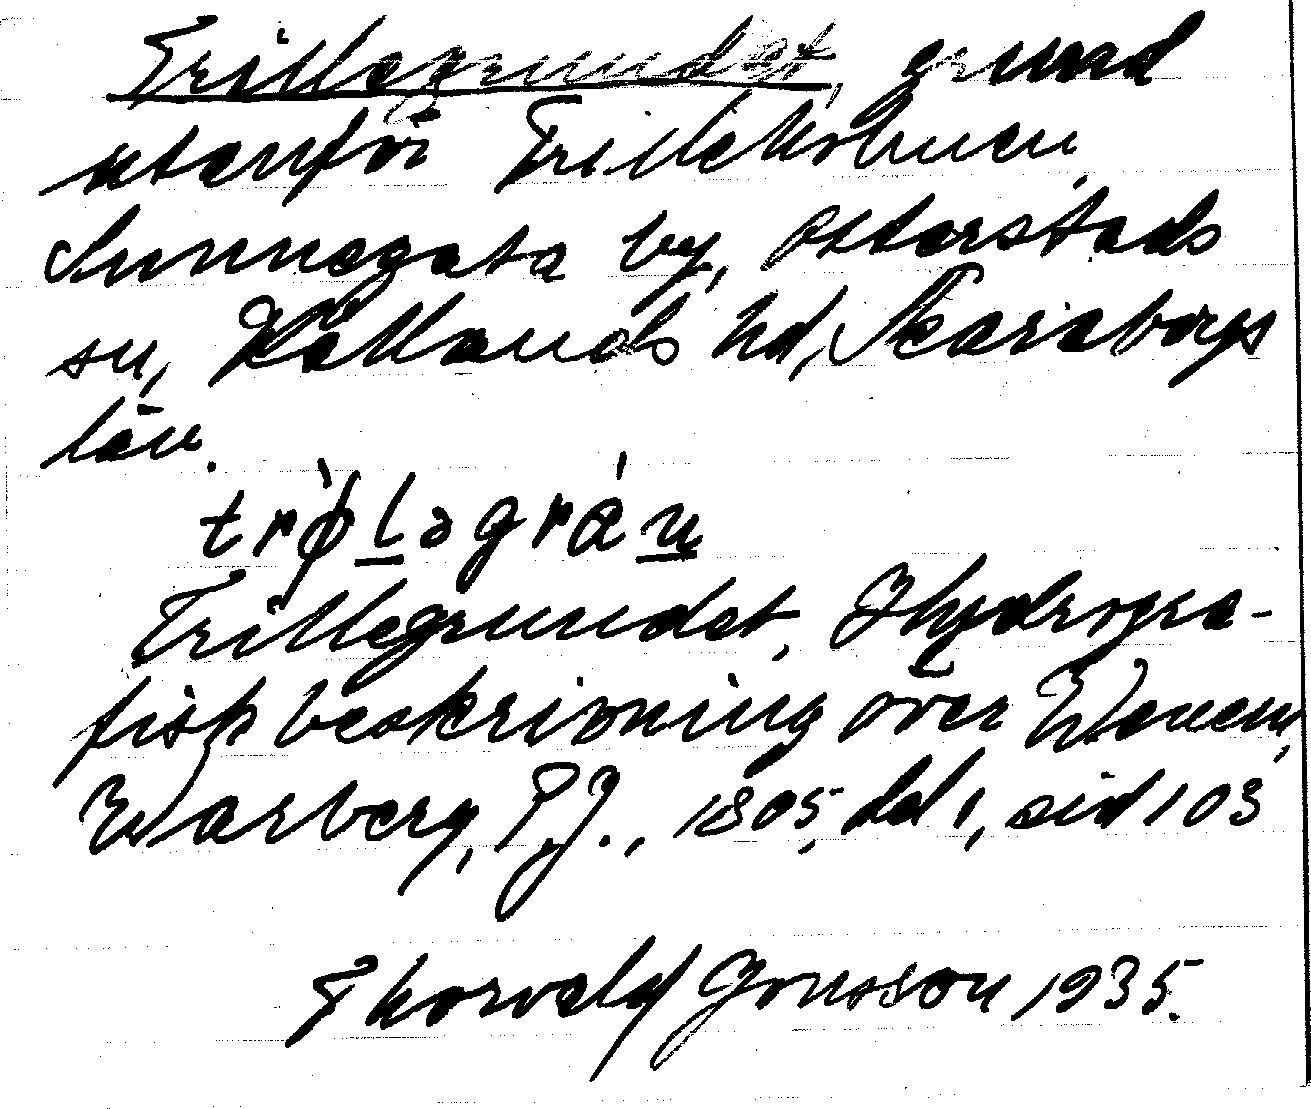 Trillegrundet, grund
utanför Trilleholmen,
Sunnegata by, Otterstads
sn, Kållands hd, Skaraborgs
län.
trø̀ləgrán
Trillegrundet, Hydrogra-
fisk beskrivning över Wenern,
Warberg, P.J., 1805, del 1, sid 103
Thorvald Jonsson 1935.